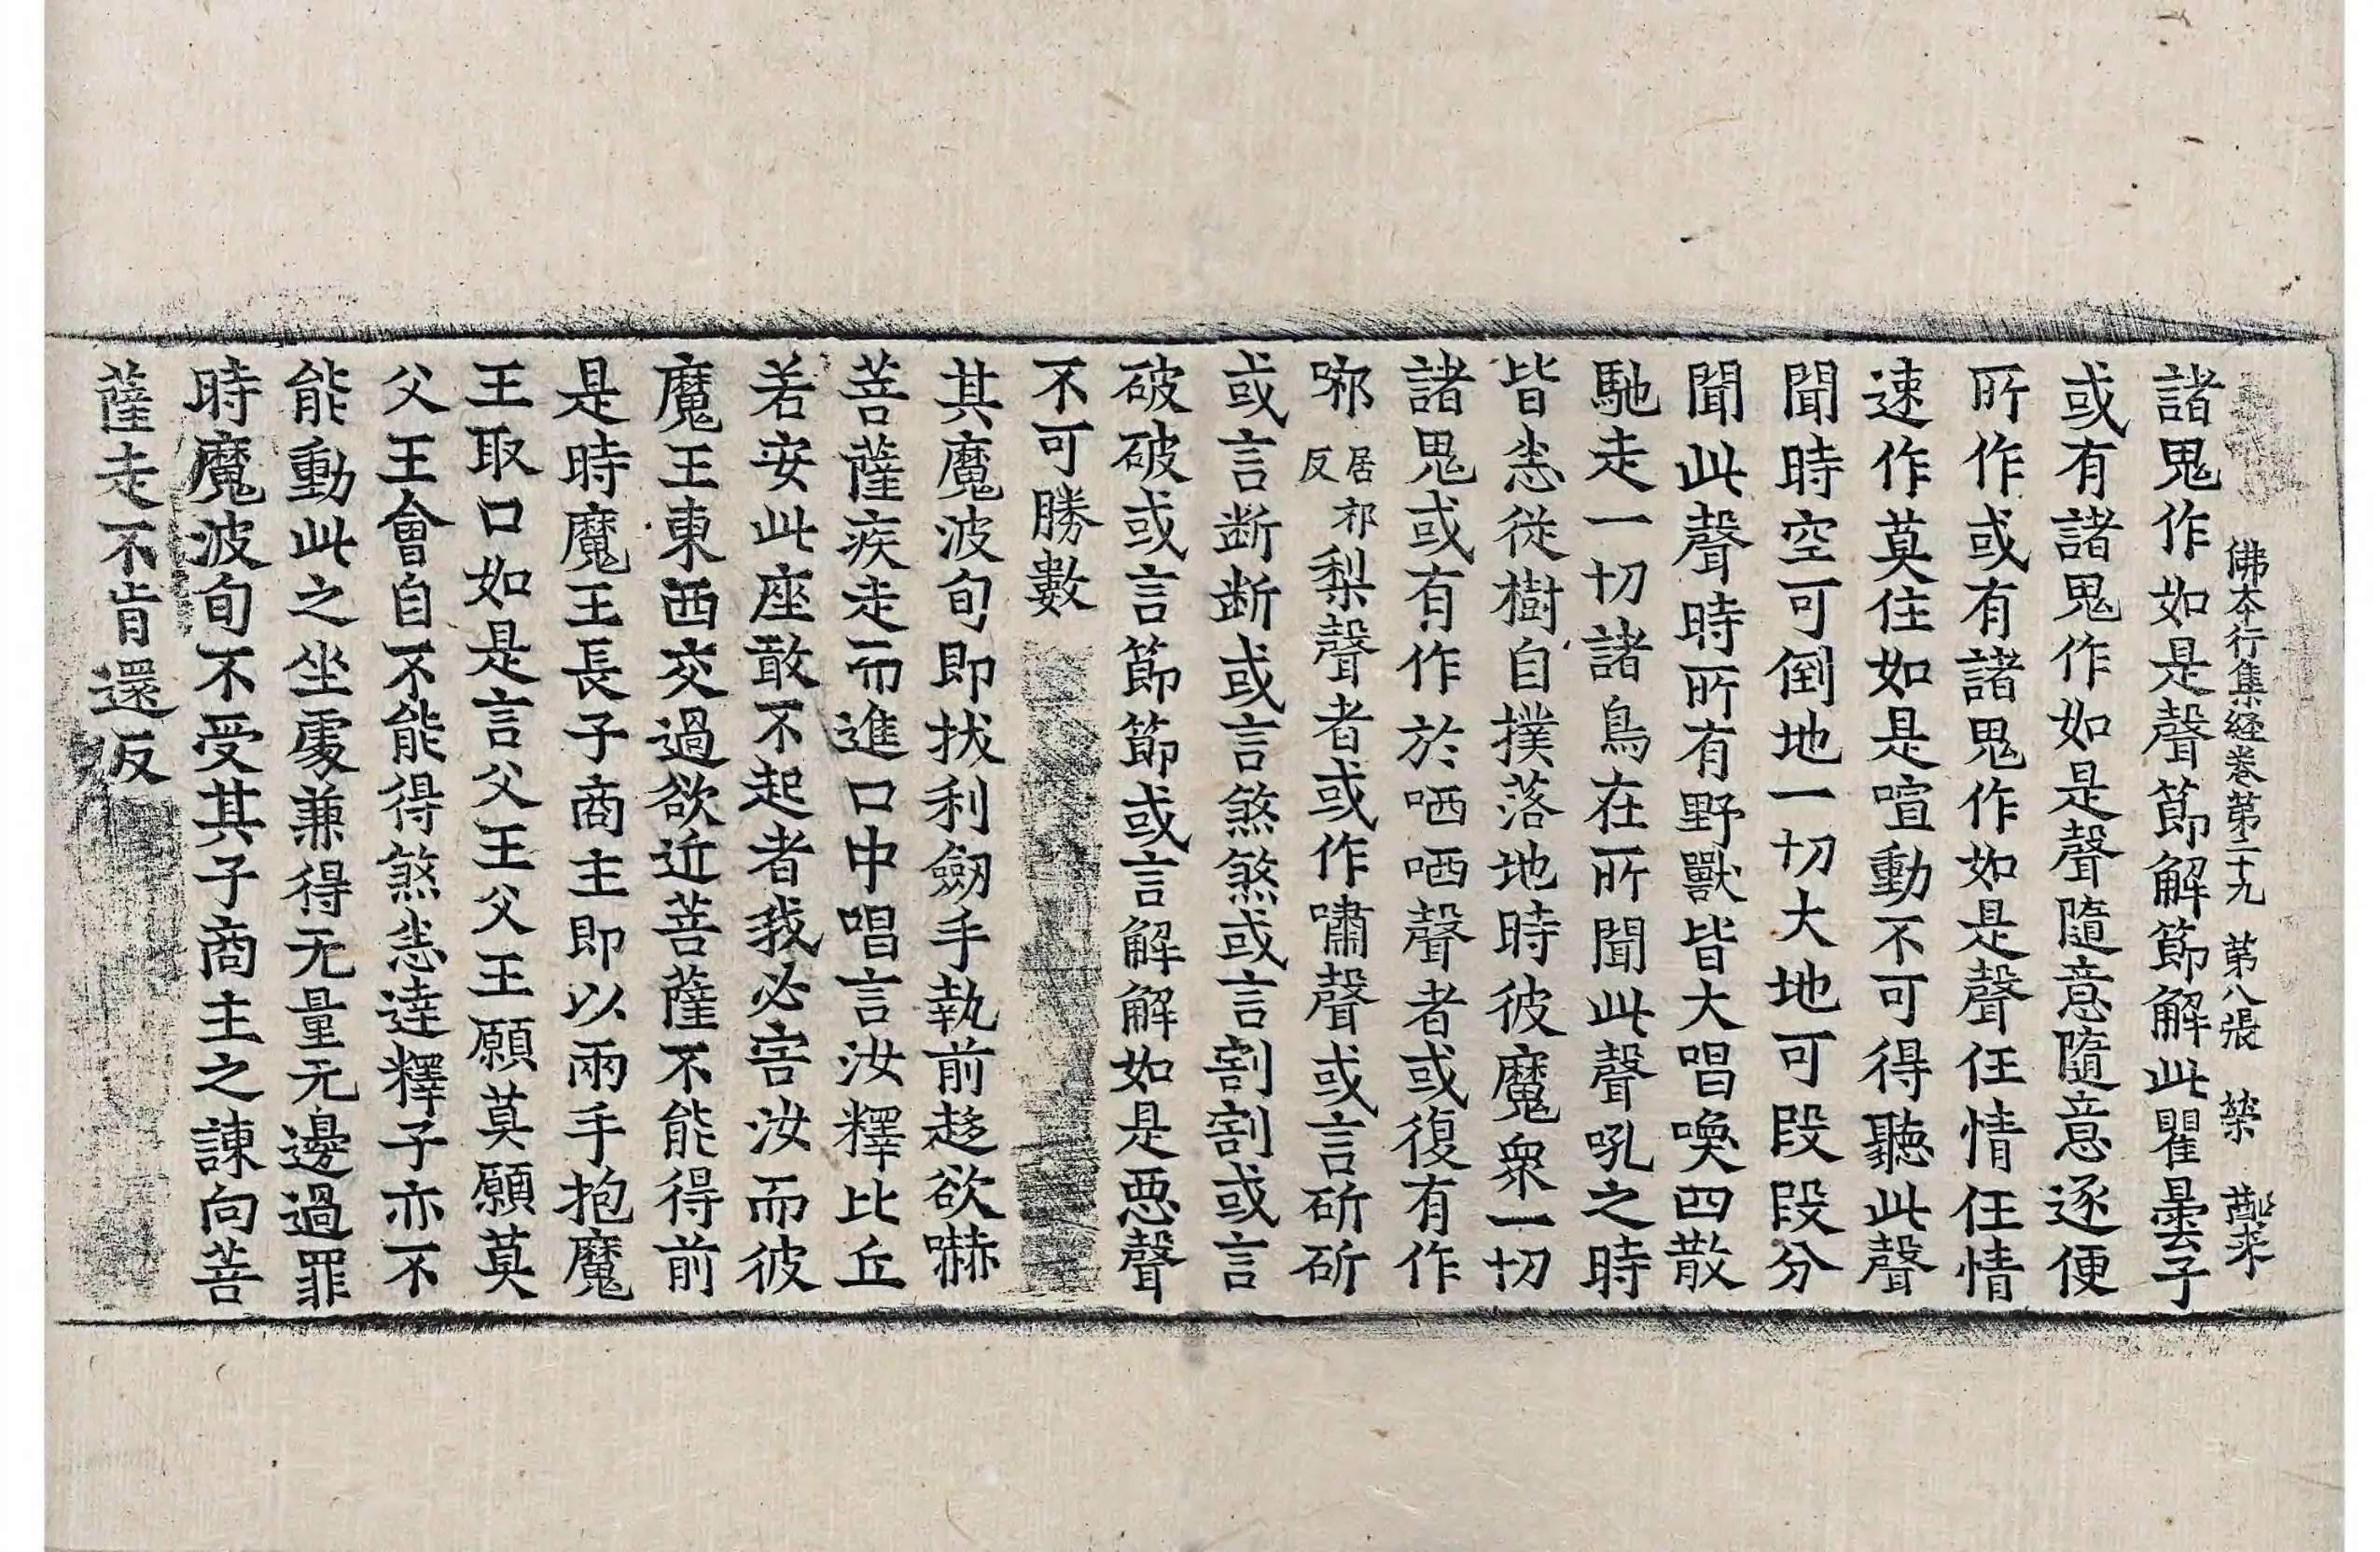 佛本行集経卷第二十九 第八張 榮
諸鬼作如是聲節解節解此瞿曇子
或有諸鬼作如是聲隨意隨意逐便
所作或有諸鬼作如是聲任情任情
速作莫住如是喧動不可得聽此聲
聞時空可倒地一切大地可段段分
聞此聲時所有野獸皆大唱喚四散
馳走一切諸鳥在所聞此聲吼之時
皆恙從樹自撲落地時彼魔衆一切
諸鬼或有作於哂哂聲者或復有作
㖿居邪反梨聲者或作嘯聲或言斫斫
或言断断或言煞煞或言割割或言
破破或言節節或言解解如是惡聲
不可勝數
其魔波旬即拔利劒手執前趍欲嚇
菩薩疾走而進口中唱言汝釋比丘
若安此座敢不起者我必害汝而彼
魔王東西交過欲近菩薩不能得前
是時魔王長子商主即以兩手抱魔
王取口如是言父王父王願莫願莫
父王會自不能得煞恙達釋子亦不
能動此之坐處兼得无量无邊過罪
時魔波旬不受其子商主之諫向菩
薩走不肯還反